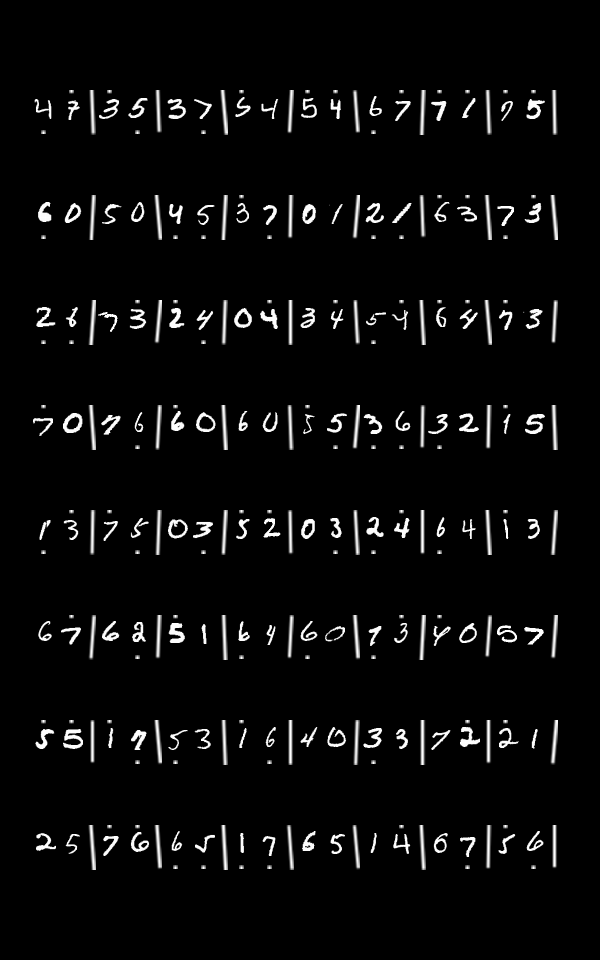 4 7 | 3 5 | 3 7 | 5 4 | 5 4 | 6 7 | 7 1 | 7 5 |
6 0 | 5 0 | 4 5 | 3 7 | 0 1 | 2 1 | 6 3 | 7 3 |
2 6 | 7 3 | 2 4 | 0 4 | 3 4 | 5 4 | 6 4 | 7 3 |
7 0 | 7 6 | 6 0 | 6 0 | 5 5 | 3 6 | 3 2 | 1 5 |
1 3 | 7 5 | 0 3 | 5 2 | 0 3 | 2 4 | 6 4 | 1 3 |
6 7 | 6 2 | 5 1 | 6 4 | 6 0 | 7 3 | 4 0 | 5 7 |
5 5 | 1 7 | 5 3 | 1 6 | 4 0 | 3 3 | 7 2 | 2 1 |
2 5 | 7 6 | 6 5 | 1 7 | 6 5 | 1 4 | 0 7 | 5 6 |